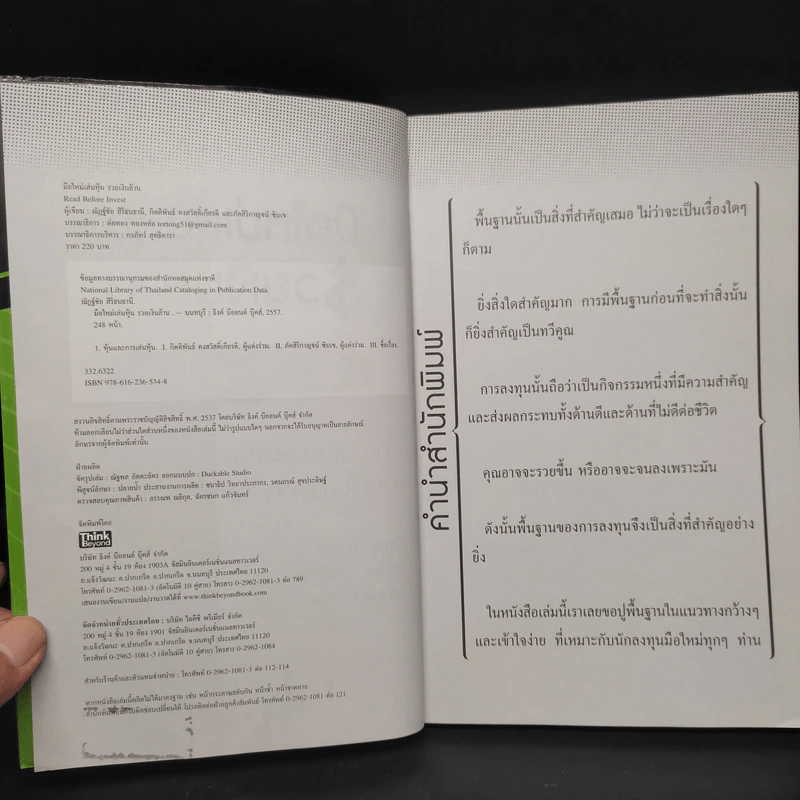 มือใหม่เล่นหุ้น รวยเงินล้าน
Read Before Invest
ผู้เขียน : ณัฏฐ์ชัย สิริธนธานี, กิตติพันธ์ คงสวัสดิ์เกียรติ และภัคสิริกาญจน์ ชิบเข
บรรณาธิการ : ต่อทอง ทองหล่อ tortong51@gmail.com
บรรณาธิการบริหาร : กรภัทร์ สุทธิดารา
ราคา 220 บาท
ข้อมูลทางบรรณานุกรมของสำนักหอสมุดแห่งชาติ
National Library of Thailand Cataloging in Publication Data
ณัฏฐ์ชัย สิริธนธานี.
มือใหม่เล่นหุ้น รวยเงินล้าน . -- นนทบุรี : ธิงค์ บียอนด์ บุ๊คส์, 2557.
248 หน้า.
1. หุ้นและการเล่นหุ้น. I. กิตติพันธ์ คงสวัสดิ์เกียรติ, ผู้แต่งร่วม. II. ภัคสิริกาญจน์ ชิบเข, ผู้แต่งร่วม. III. ชื่อเรื่อง.
332.6322
ISBN 978-616-236-534-8
สงวนลิขสิทธิ์ตามพระราชบัญญัติลิขสิทธิ์ พ.ศ. 2537 โดยบริษัท ธิงค์ บียอนด์ บุ๊คส์ จำกัด
ห้ามลอกเลียนไม่ว่าส่วนใดส่วนหนึ่งของหนังสือเล่มนี้ ไม่ว่ารูปแบบใดๆ นอกจากจะได้รับอนุญาตเป็นลายลักษณ์
อักษรจากผู้จัดพิมพ์เท่านั้น
ฝ่ายผลิต
จัดรูปเล่ม : ณัฐพล อัคคะอัคร ออกแบบปก : Duckable Studio
พิสูจน์อักษร : ปลายน้ำ ประสานงานการผลิต : ชนาธิป วิทยาประภากร, รดนกรณ์ สุขประดิษฐ์
ตรวจสอบคุณภาพสินค้า : อรรณพ ณธิกุล, ฉัตรชนก แก้วจันทร์
จัดพิมพ์โดย
Think
Beyond
บริษัท ธิงค์ บียอนด์ บุ๊คส์ จำกัด
200 หมู่ 4 ชั้น 19 ห้อง 1903A จัสมินอินเตอร์เนชั่นแนลทาวเวอร์
ถ.แจ้งวัฒนะ ต.ปากเกร็ด อ.ปากเกร็ด จ.นนทบุรี ประเทศไทย 11120
โทรศัพท์ 0-2962-1081-3 (อัตโนมัติ 10 คู่สาย) โทรสาร 0-2962-1081-3 ต่อ 789
เสนองานเขียน/งานแปล/งานวาดได้ที่ www.thinkbeyondbook.com
จัดจำหน่ายทั่วประเทศโดย : บริษัท ไอดีซี พรีเมียร์ จำกัด
200 หมู่ 4 ชั้น 19 ห้อง 1901 จัสมินอินเตอร์เนชั่นแนลทาวเวอร์
ถ.แจ้งวัฒนะ ต.ปากเกร็ด อ.ปากเกร็ด จ.นนทบุรี ประเทศไทย 11120
โทรศัพท์ 0-2962-1081-3 (อัตโนมัติ 10 คู่สาย) โทรสาร 0-2962-1084
สำหรับร้านค้าและตัวแทนจำหน่าย : โทรศัพท์ 0-2962-1081-3 ต่อ 112-114
หากหนังสือเล่มนี้ผลิตไม่ได้มาตรฐาน เช่น หน้ากระดาษสลับกัน หน้าซ้ำ หน้าขาดหาย
สำนักพิมพ์ยินดีรับผิดชอบเปลี่ยนให้ โปรดติดต่อฝ่ายลูกค้าสัมพันธ์ โทรศัพท์ 0-2962-1081 ต่อ 121
คำนำสำนักพิมพ์
พื้นฐานนั้นเป็นสิ่งที่สำคัญเสมอ ไม่ว่าจะเป็นเรื่องใดๆ
ก็ตาม
ยิ่งสิ่งใดสำคัญมาก การมีพื้นฐานก่อนที่จะทำสิ่งนั้น
ก็ยิ่งสำคัญเป็นทวีคูณ
การลงทุนนั้นถือว่าเป็นกิจกรรมหนึ่งที่มีความสำคัญ
และส่งผลกระทบทั้งด้านดีและด้านที่ไม่ดีต่อชีวิต
คุณอาจจะรวยขึ้น หรืออาจจะจนลงเพราะมัน
ดังนั้นพื้นฐานของการลงทุนจึงเป็นสิ่งที่สำคัญอย่าง
ยิ่ง
ในหนังสือเล่มนี้เราเลยขอปูพื้นฐานในแนวทางกว้างๆ
และเข้าใจง่าย ที่เหมาะกับนักลงทุนมือใหม่ทุกๆ ท่าน